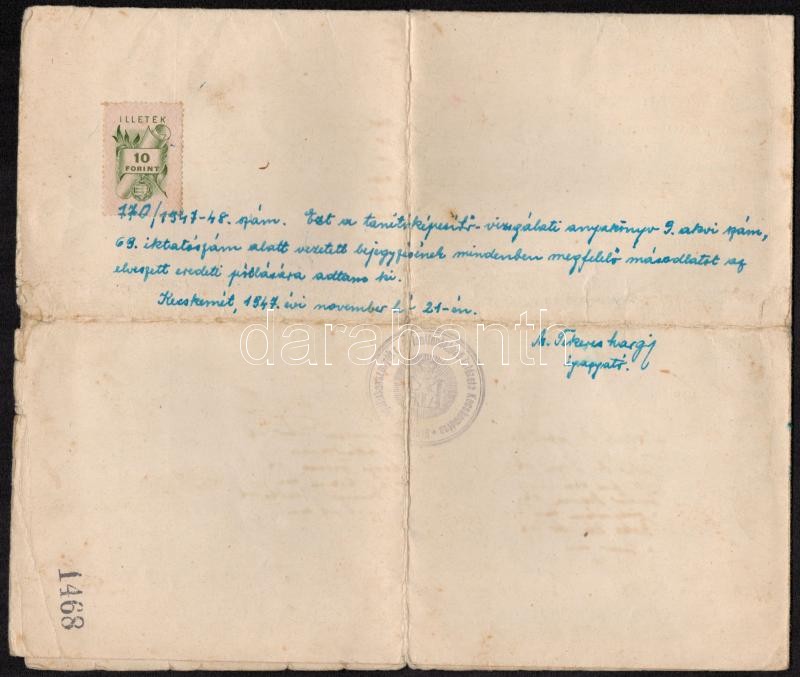 ILLETÉK
10
FORINT
770/1947-48. szám. Ezt a tanítóképesítő-vizsgálati anyakönyv 9. szám,
69. iktatószám alatt vezetett bejegyzésének mindenben megfelelő másodlatot az
elveszett eredeti pótlására adtam ki.
Kecskemét, 1947. évi november hó 21-én.
M.
igazgató.
darabanth
Kecskeméten
1468